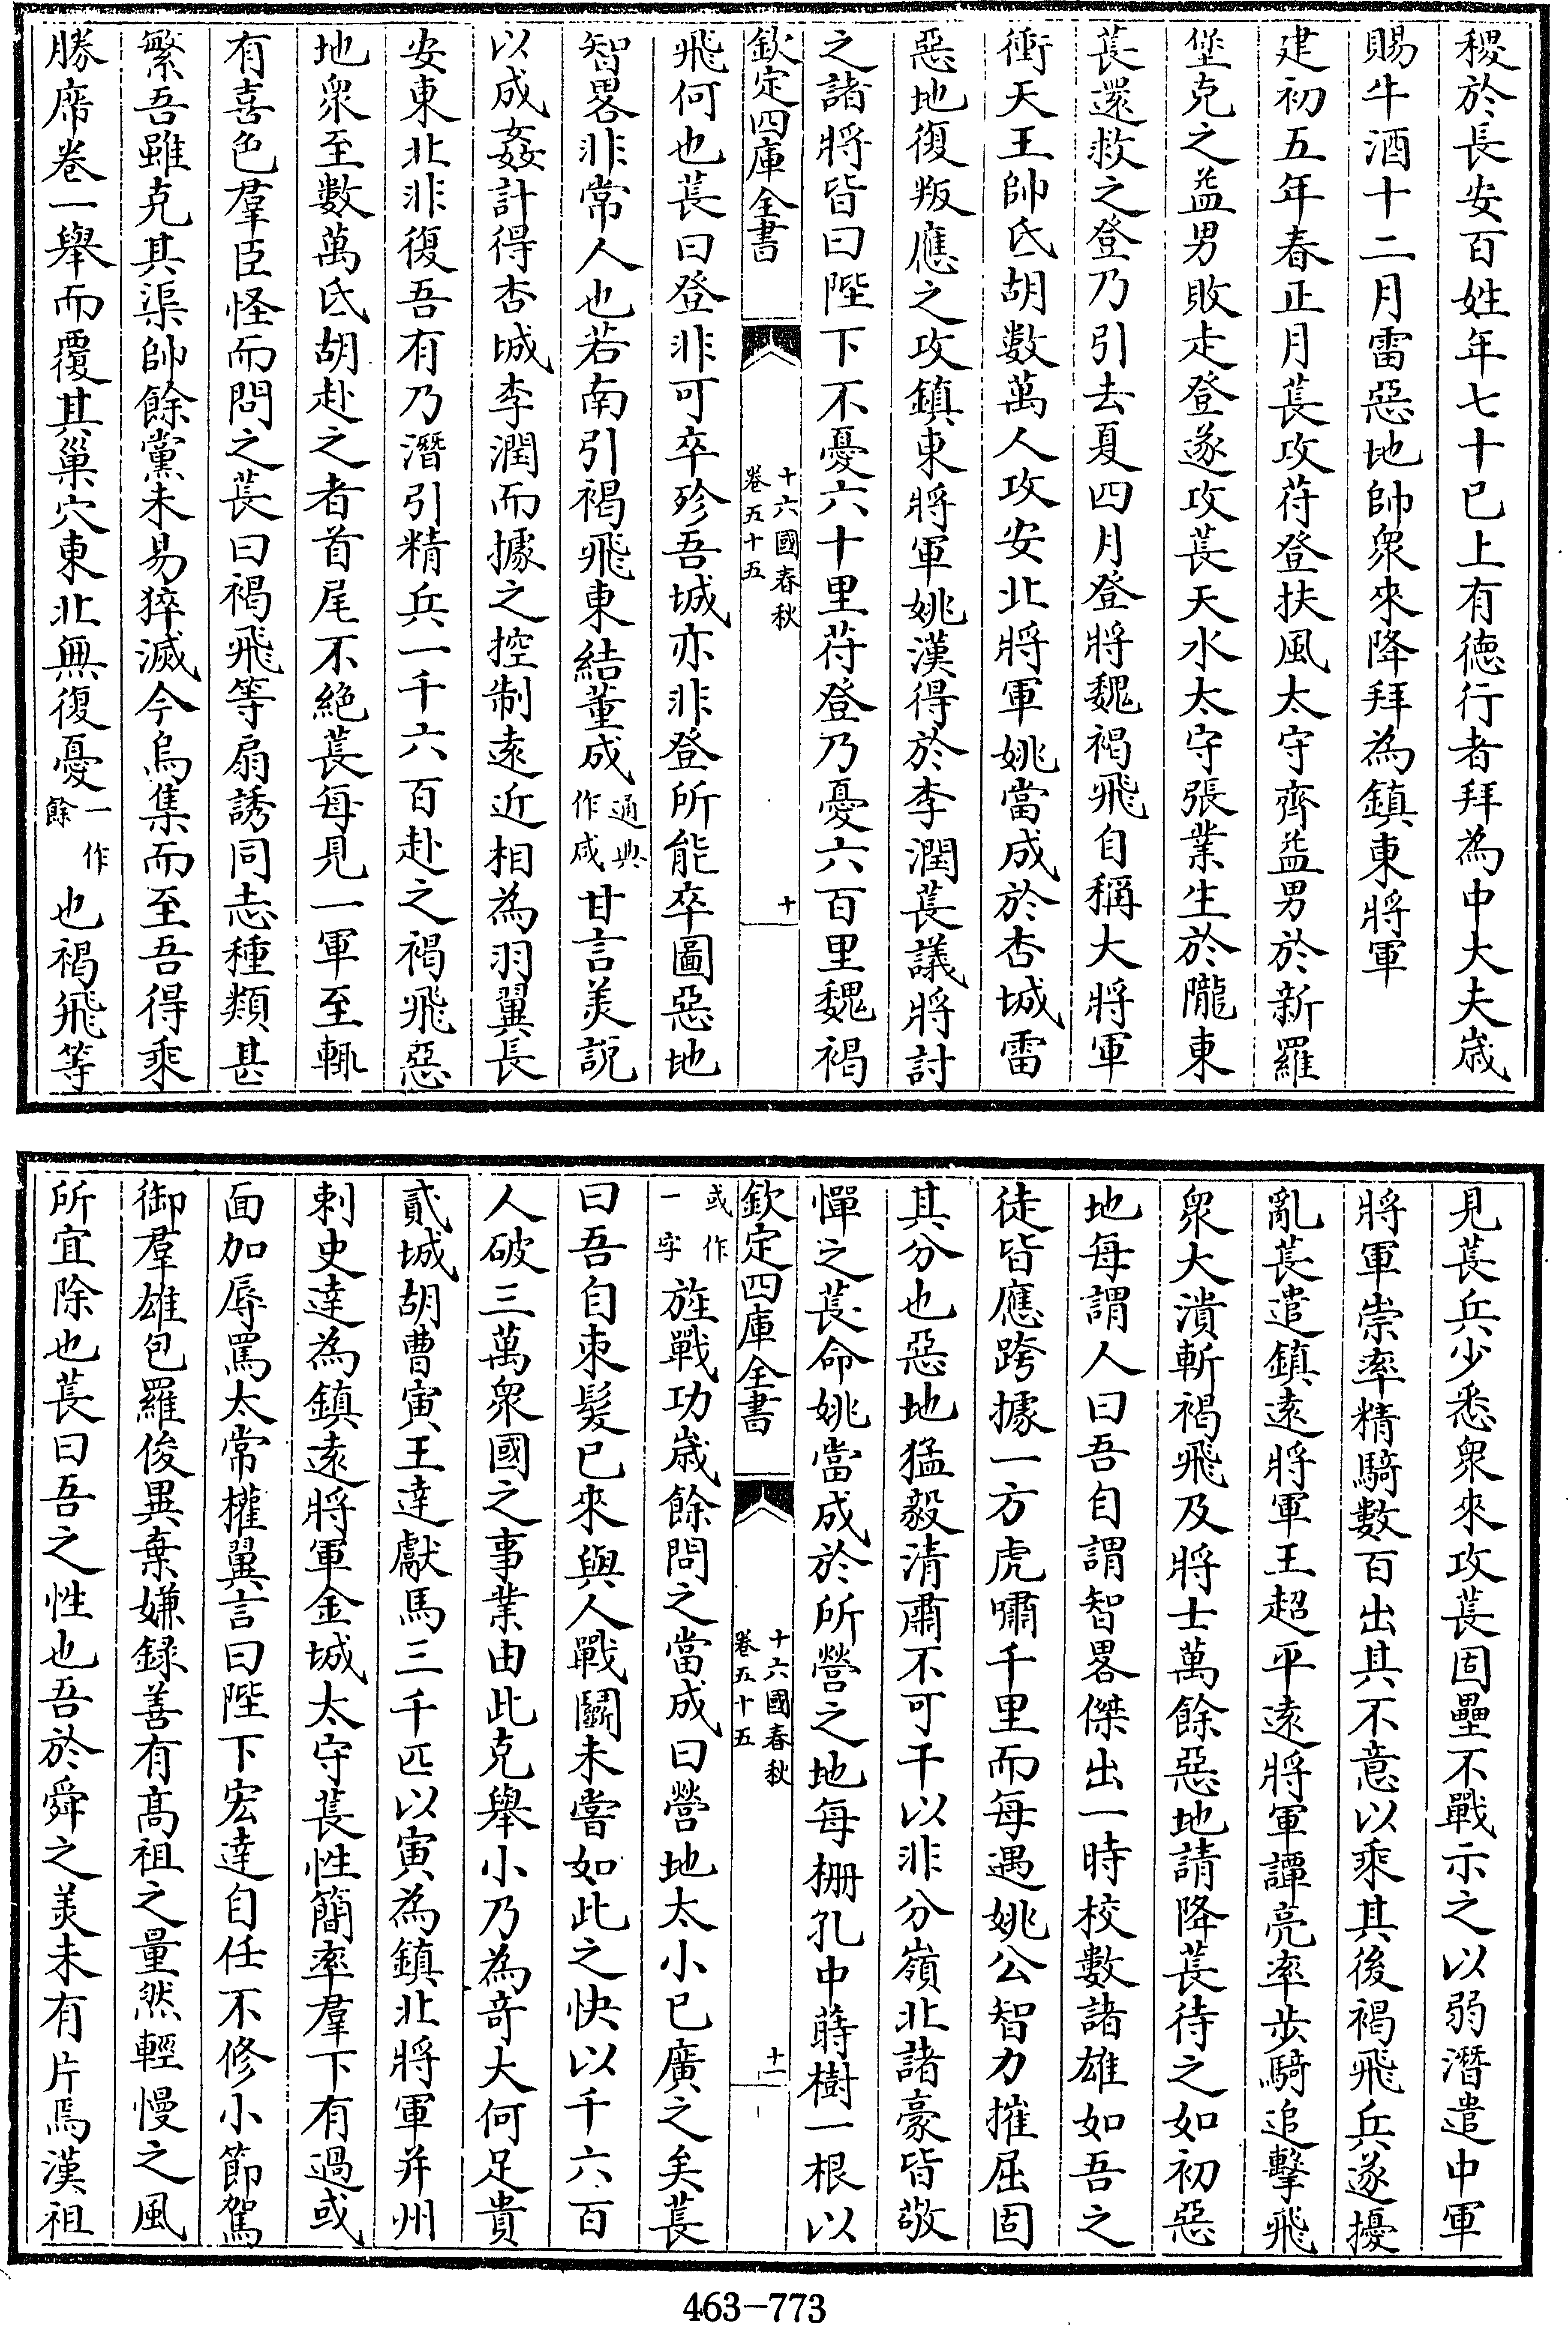 稷於長安百姓年七十已上有徳行者拜為中大夫歳
賜牛酒十二月雷惡地帥衆來降拜為鎮東將軍
建初五年春正月萇攻苻登扶風太守齊益男於新羅
堡克之益男敗走登遂攻萇天水太守張業生於隴東
萇還救之登乃引去夏四月登將魏褐飛自稱大將軍
衝天王帥氐胡數萬人攻安北將軍姚當成於杏城雷
惡地復叛應之攻鎮東將軍姚漢得於李潤萇議將討
之諸將皆曰陛下不憂六十里苻登乃憂六百里魏褐
欽定四庫全書
十六國春秋
卷五十五
十
飛何也萇曰登非可卒殄吾城亦非登所能卒圖惡地
智畧非常人也若南引褐飛東結董成
通典
作咸
甘言美說
以成姦計得杏城李潤而據之控制遠近相為羽翼長
安東北非復吾有乃潛引精兵一千六百赴之褐飛惡
地衆至數萬氐胡赴之者首尾不絶萇每見一軍至輒
有喜色羣臣怪而問之萇曰褐飛等扇誘同志種類甚
繁吾雖克其渠帥餘黨未易猝滅今烏集而至吾得乘
勝席卷一舉而覆其巢穴東北無復憂
一作
餘
也褐飛等
見萇兵少悉衆來攻萇固壘不戰示之以弱潛遣中軍
將軍崇率精騎數百出其不意以乘其後褐飛兵遂擾
亂萇遣鎮遠將軍王超平遠將軍譚亮率步騎追擊飛
衆大潰斬褐飛及將士萬餘惡地請降萇待之如初惡
地每謂人曰吾自謂智畧傑出一時校數諸雄如吾之
徒皆應跨據一方虎嘯千里而每遇姚公智力摧屈固
其分也惡地猛毅清肅不可干以非分嶺北諸豪皆敬
憚之萇命姚當成於所營之地每柵孔中蒔樹一根以
欽定四庫全書
十六國春秋
卷五十五
十一
或作
一字
旌戰功歳餘問之當成曰營地太小已廣之矣萇
曰吾自束髮已來與人戰鬭未嘗如此之快以千六百
人破三萬衆國之事業由此克舉小乃為竒大何足貴
貳城胡曹寅王達獻馬三千匹以寅為鎮北將軍并州
刺史達為鎮遠將軍金城太守萇性簡率羣下有過或
面加辱罵太常權翼言曰陛下宏達自任不修小節駕
御羣雄包羅俊異棄嫌録善有髙祖之量然輕慢之風
所宜除也萇曰吾之性也吾於舜之美未有片焉漢祖
463-773